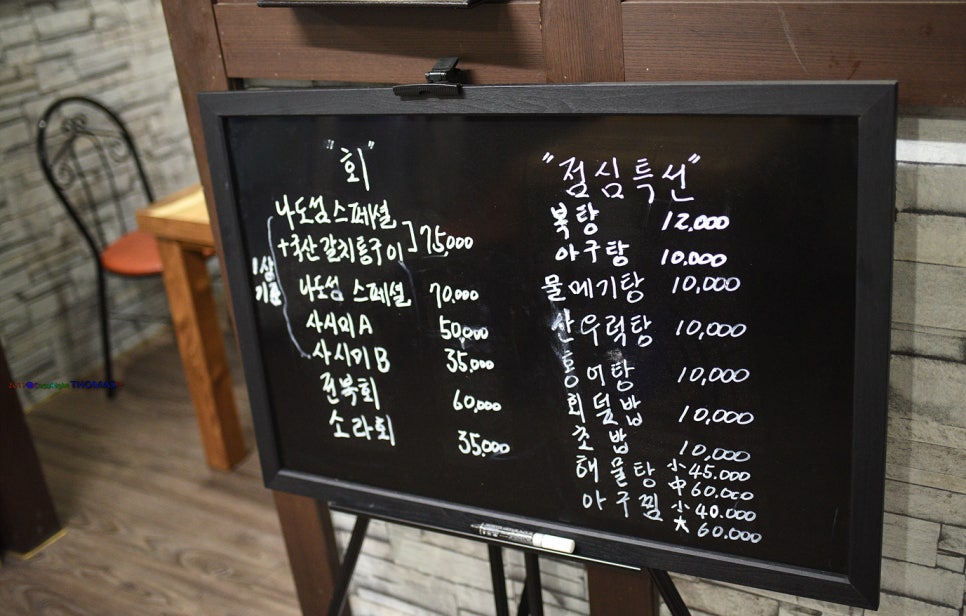 "회"
나도섬 스페셜
+국산갈치통구이 ] 75,000
1상
기준
나도섬 스페셜 70,000
사시미 A 50,000
사시미 B 35,000
전복회 60,000
소라회 35,000
"점심특선"
복탕 12,000
아구탕 10,000
물메기탕 10,000
산우럭탕 10,000
통어탕 10,000
회덮밥 10,000
초밥 10,000
해물탕 小 45.000
中 60.000
아구찜 小 40.000
大 60.000
THOMAS